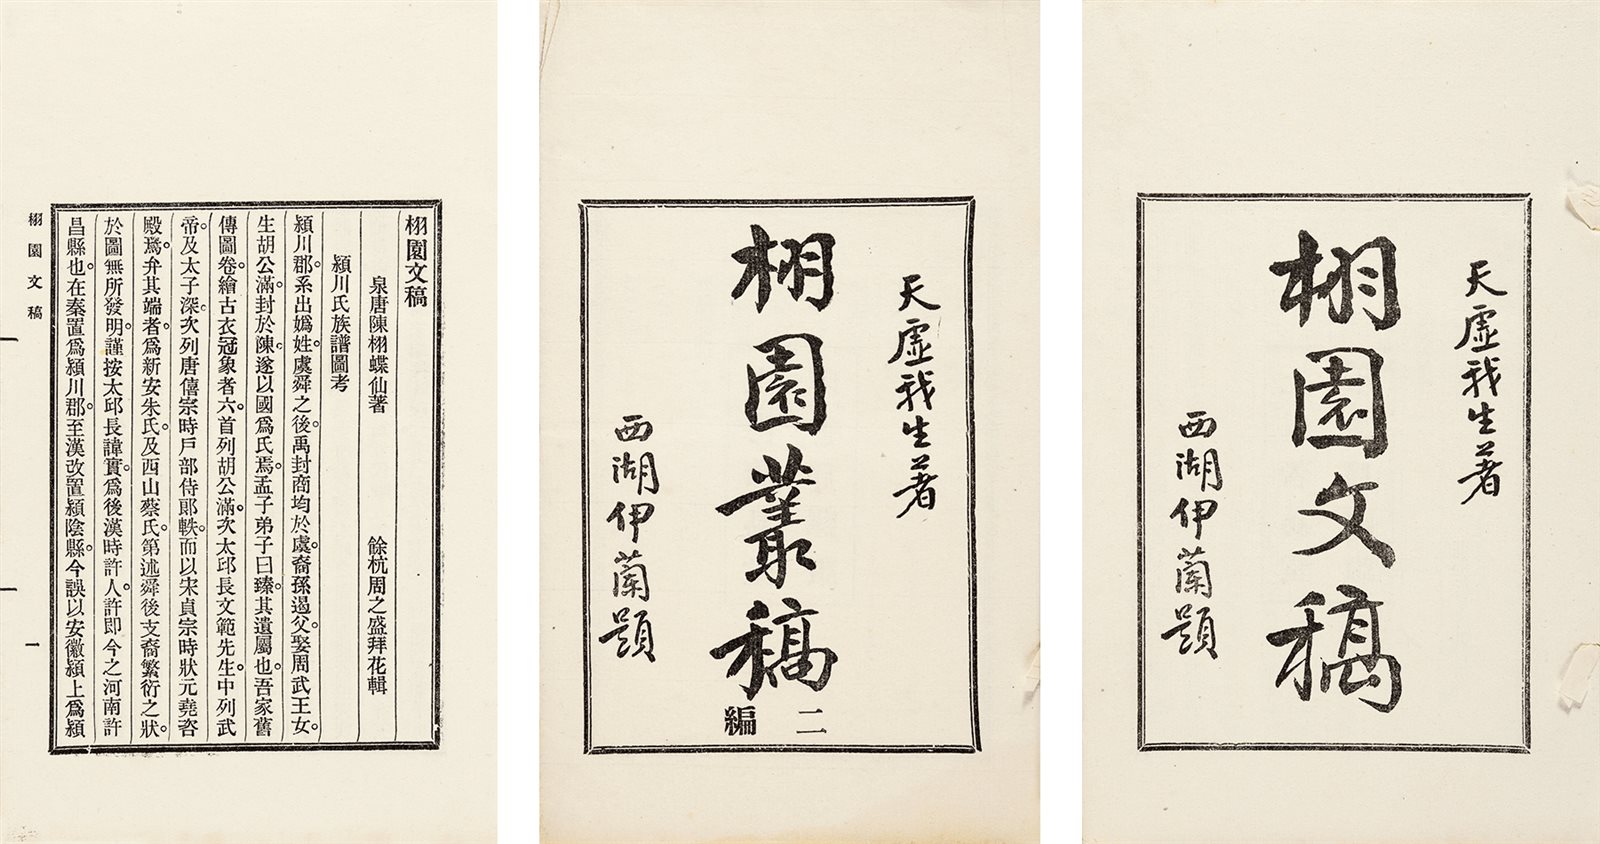 栩園文稿
泉唐陳栩蝶仙著 餘杭周之盛拜花輯
潁川氏族譜圖考
潁川郡。系出嬀姓。虞舜之後。禹封商均於虞。裔孫遏父。娶周武王女。
生胡公滿。封於陳。遂以國爲氏焉。孟子弟子曰臻。其遺屬也。吾家舊
傳圖卷。繪古衣冠象者六。首列胡公滿。次太邱長文範先生。中列武
帝。及太子深。次列唐僖宗時戶部侍郞軼。而以宋貞宗時狀元堯咨
殿焉。弁其端者。爲新安朱氏。及西山蔡氏。第述舜後支裔繁衍之狀。
於圖無所發明。謹按太邱長諱實。爲後漢時許人。許即今之河南許
昌縣也。在秦置爲潁川郡。至漢改置潁陰縣。今誤以安徽潁上爲潁
栩園文稿 一
天虛我生著
栩園叢稿
二編
西湖伊蘭題
天虛我生著
栩園文稿
西湖伊蘭題